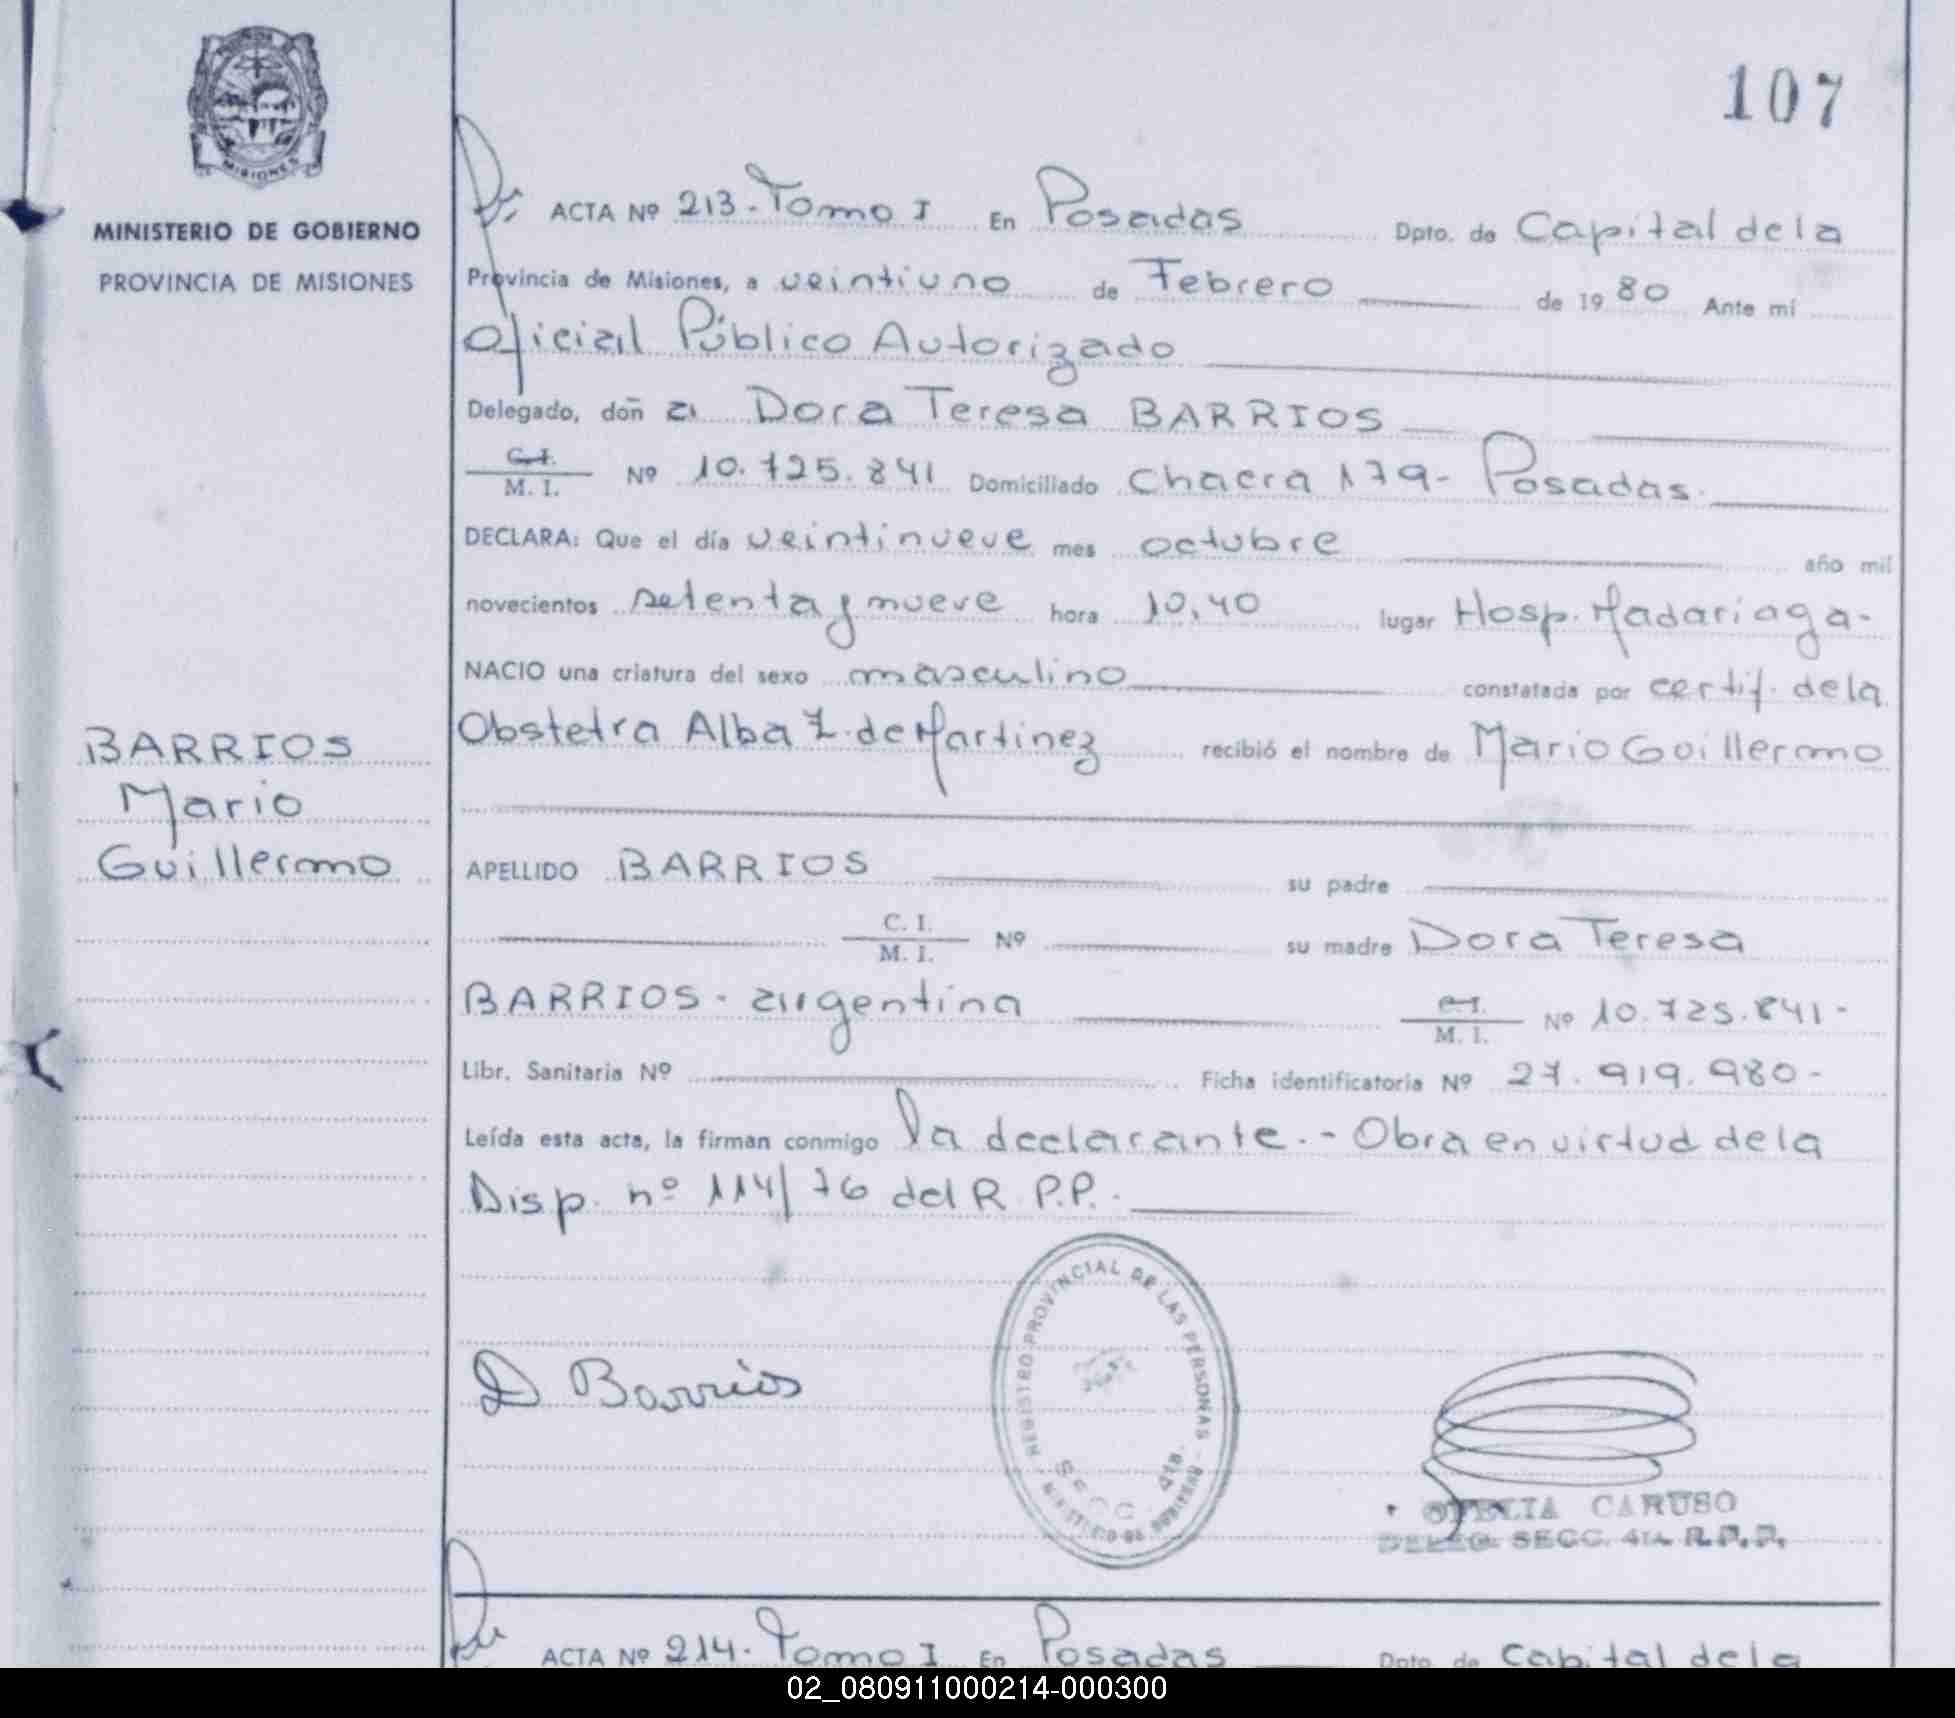 107
MISIONES
MINISTERIO DE GOBIERNO
PROVINCIA DE MISIONES
ACTA Nº 213 - Tomo I En Posadas Dpto. de Capital de la
Provincia de Misiones, a veintiuno de Febrero de 1980 Ante mí
Oficial Público Autorizado
Delegado, don a Dora Teresa BARRIOS
C.I.
M. I. Nº 10.725.841 Domiciliado Chacra 179- Posadas.
DECLARA: Que el día veintinueve mes octubre año mil
novecientos setenta y nueve hora 10,40 lugar Hosp. Madariaga-
NACIO una criatura del sexo masculino constatada por certif. de la
Obstetra Alba Z. de Martinez recibió el nombre de Mario Guillermo
BARRIOS
Mario
Guillermo
APELLIDO BARRIOS su padre
C. I.
M. I. Nº su madre Dora Teresa
BARRIOS - argentina C.I.
M. I. Nº 10.725.841-
Libr. Sanitaria Nº Ficha identificatoria Nº 27.919.980-
Leída esta acta, la firman conmigo la declarante.- Obra en virtud de la
Disp. nº 114/76 del R P.P.
D Barrios
REGISTRO PROVINCIAL DE LAS PERSONAS
SECC. 4ta.
MINISTERIO DE GOBIERNO
OFELIA CARUSO
DELEG. SECC. 4ta R.P.P.
ACTA Nº 214- Tomo I En Posadas Dpto. de Capital de la
02_080911000214-000300